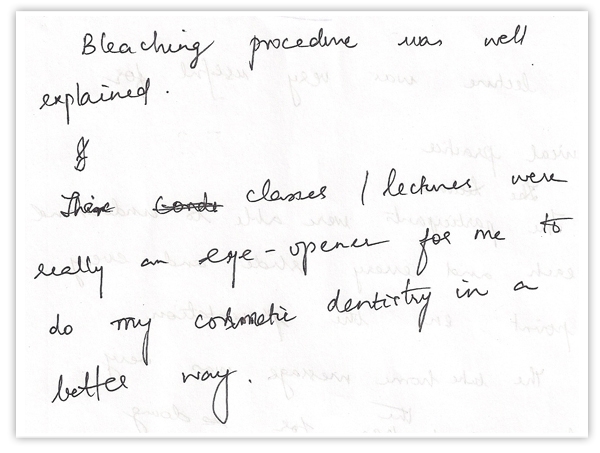 Bleaching procedure was well
explained.
These classes / lectures were
really an eye-opener for me to
do my cosmetic dentistry in a
better way.